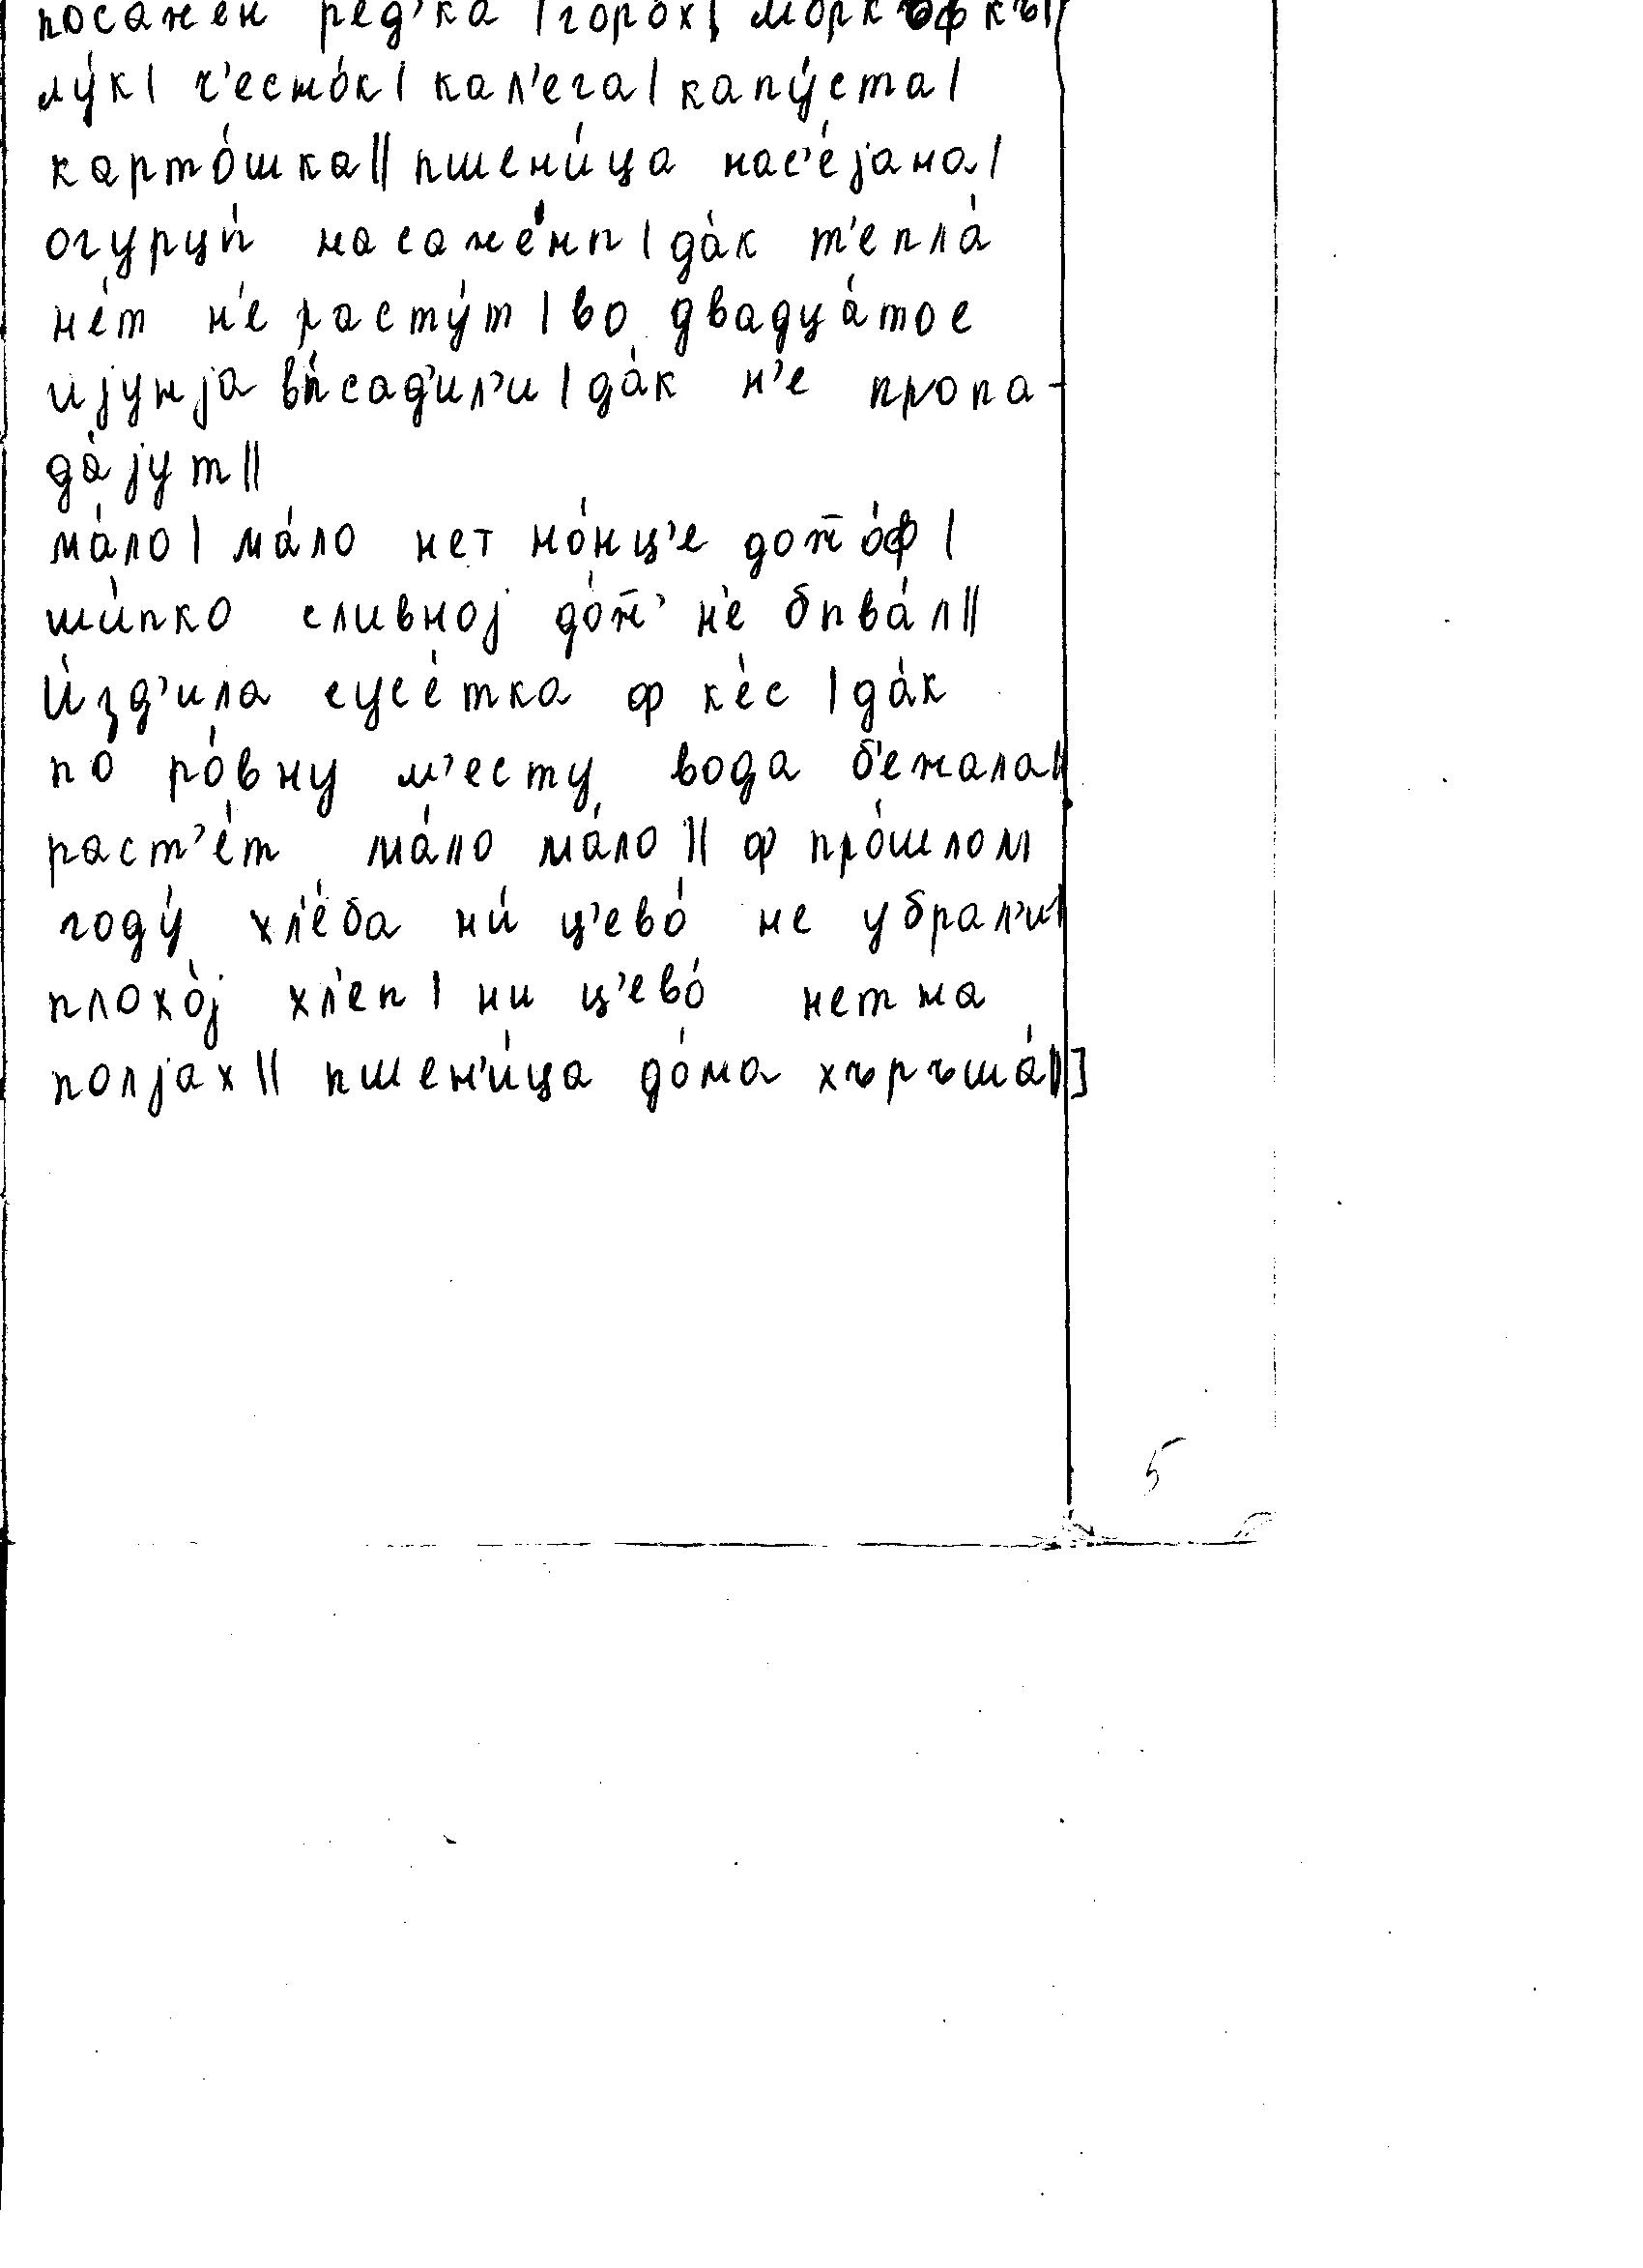 посажен ред'ка | горох | моркъфкъ|
лу́к| ч'есно́к| кал'ега| капу́ста|
карто́шка|| пшени́ца нас'е́јана|
огурцы́ насаже́ны| да́к т'епла́
не́т н'е расту́т| во двадца́тое
ијунја вы́сад'ил'и| да́к н'е пропа-
да́јут||
ма́ло| ма́ло нет но́нц'е дож̅о́ф|
ши́пко сливној до́ж̅' н'е быва́л||
И́зд'ила сусе́тка ф ке́с | да́к
по ро́вну м'есту вода б'ежала||
раст'е́т ма́ло ма́ло|| ф про́шлом
году́ хл'е́ба ни́ ц'ево́ не убрал'и|
плохо́ј хл'еп| ни ц'ево́ нет на
полјах|| пшен'и́ца до́ма хъръша́||]
5